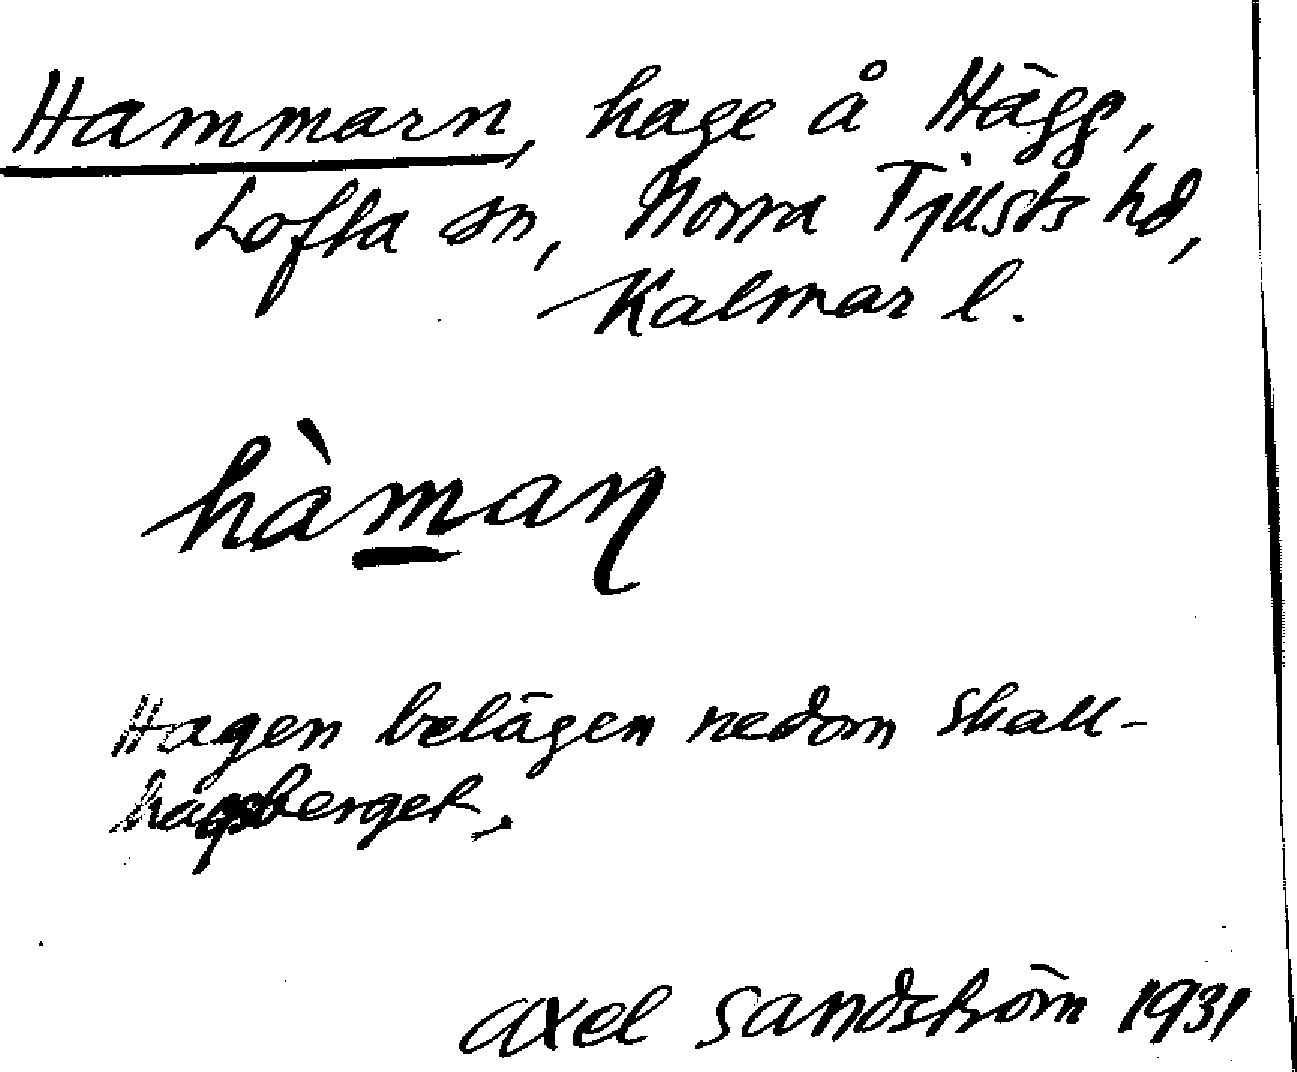 Hammarn, hage å Hägg,
Lofta sn, Norra Tjusts hd,
Kalmar l.
hàman
Hagen belägen nedom Skall-
hagsberget.
Axel Sandström 1931